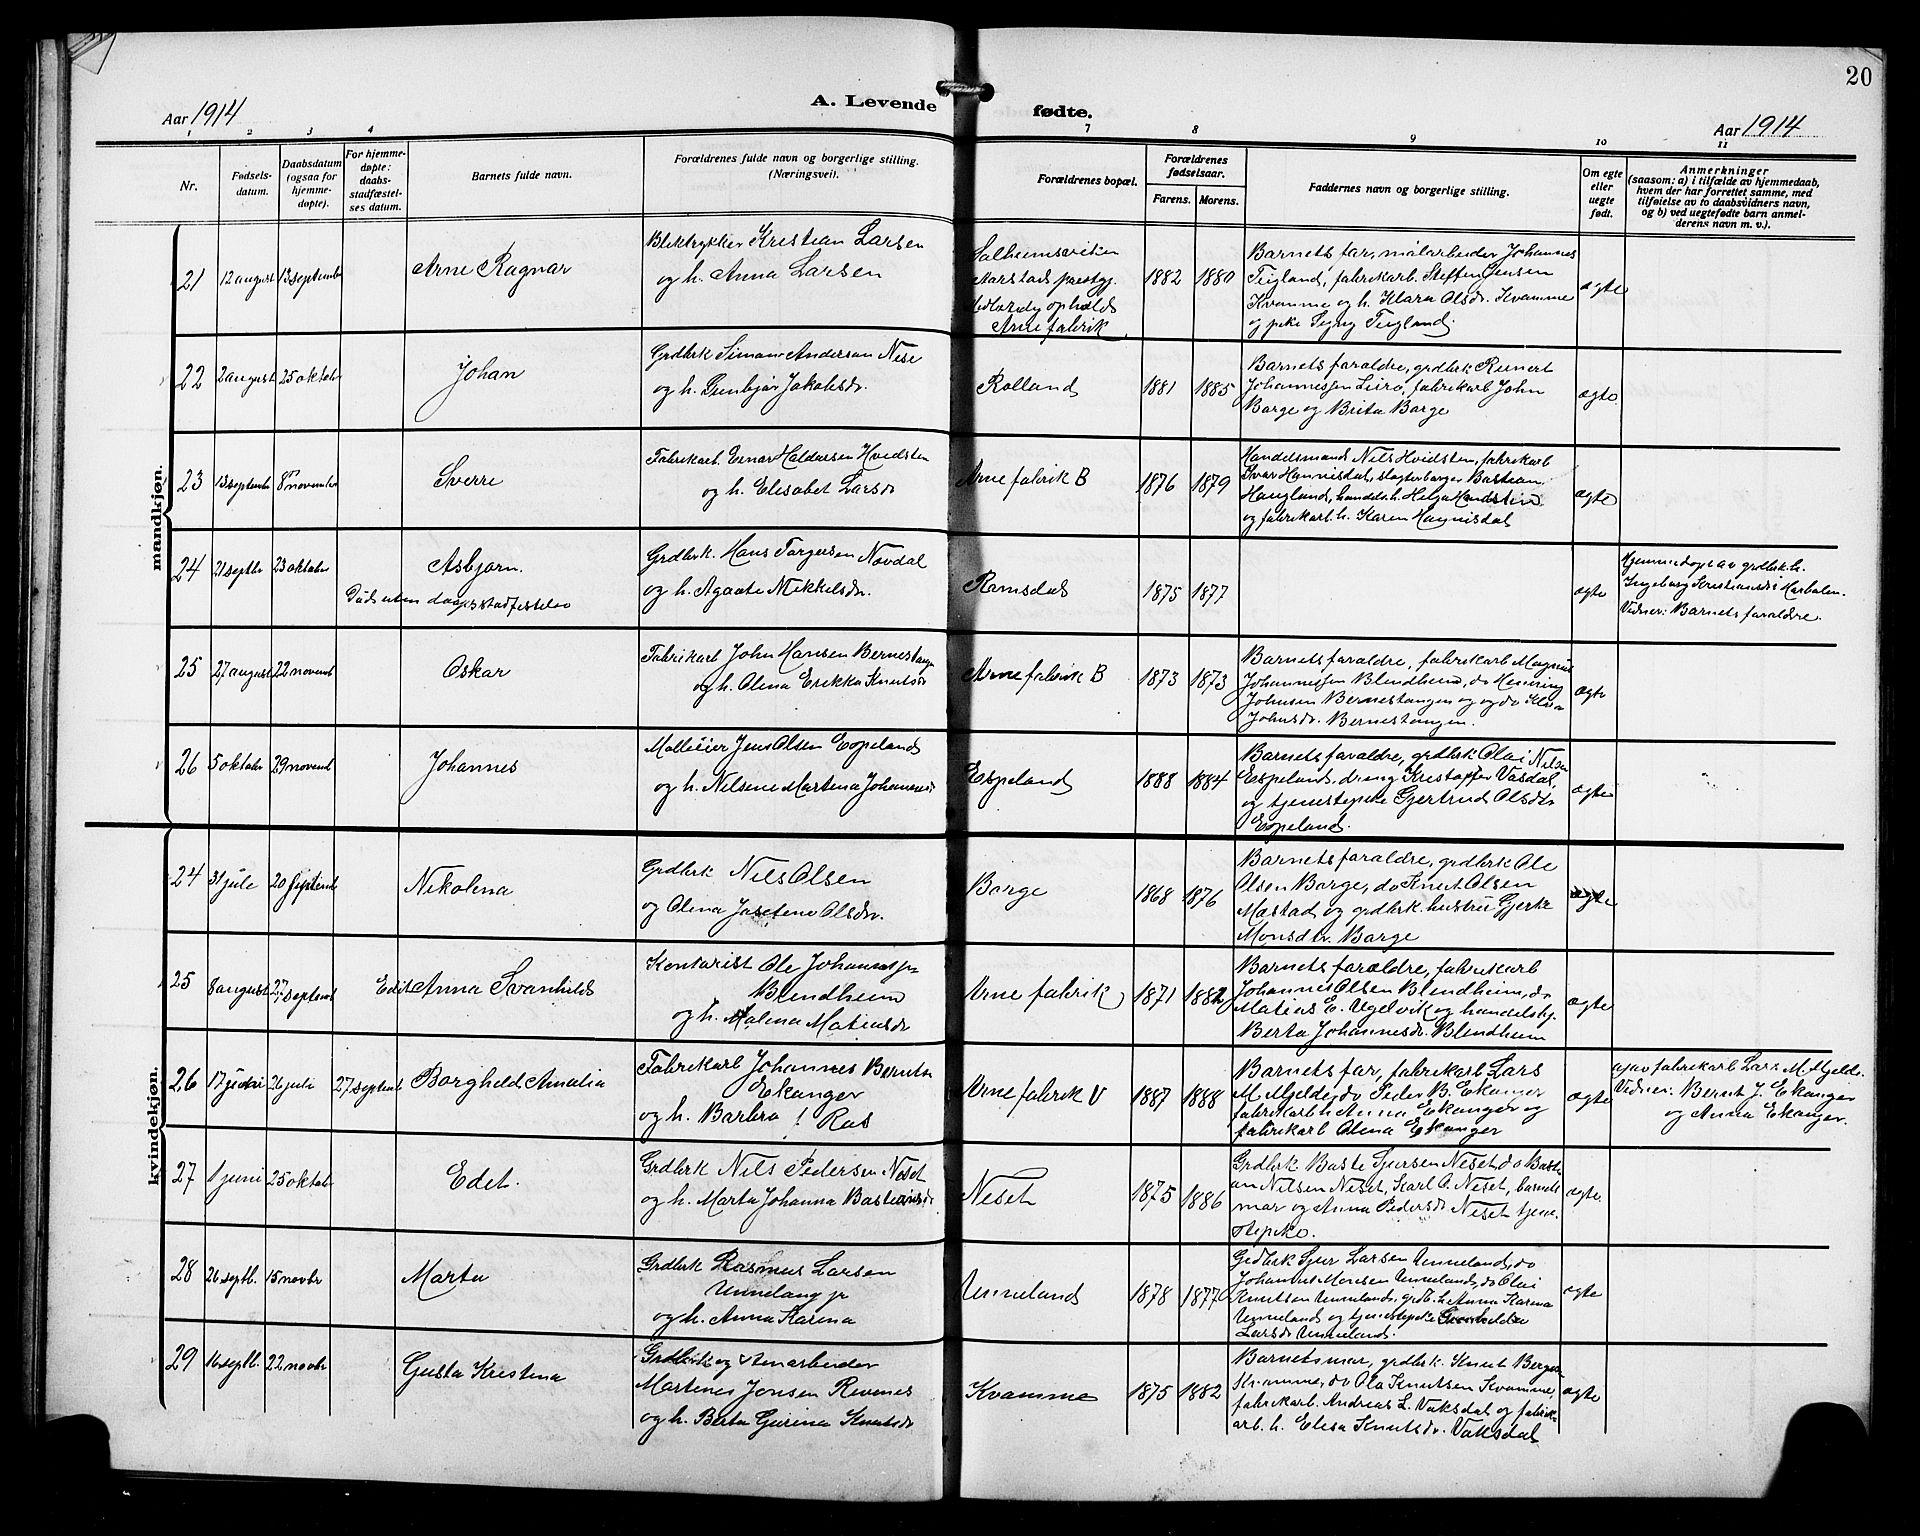 20
Aar 1914
A. Levende
fødte.
Aar 1914
1 2 3 4 7 8 9 10 11
Nr.
Fødsels-
datum.
Daabsdatum
(ogsaa for
hjemme-
døpte).
For hjemme-
døpte:
daabs-
stadfæstel-
ses datum.
Barnets fulde navn.
Forældrenes fulde navn og borgerlige stilling.
(Næringsvei).
Forældrenes bopæl.
Forældrenes
fødselsaar.
Farens. Morens.
Faddernes navn og borgerlige stilling.
Om egte
eller
uegte
født.
Anmerkninger
(saasom: a) i tilfælde av hjemmedaab,
hvem der har forrettet samme, med
tilføielse av to daabsvidners navn,
og b) ved uegtefødte barn anmel-
derens navn m. v.).
mandkjøn.
21 12 august 13 septembr
Arne Ragnar
Bliktrykker Kristian Larsen
og h. Anna Larsen
Solheimsviken
Aarstad prestgj.
opholds
Arne fabrik
1882 1880
Barnets far, målarbeider Johannes
Teigland, fabrikarb. Steffen Jensen
Kvamme og h. Klara Olsdr. Kvamme
og pike Signy Teigland.
ægte
22 2 august 25 oktobr
Johan
Grdbrk Simon Anderson Nese
og h. Gunbjør Jakobsdr.
Rolland
1881 1885
Barnets foraldre, grdbrk Reinert
Johannessen Leiro, fabrikarb John
Borge og Brita Borge
ægte
23 13 septembr 8 november
Sverre
Fabrikarb. Einar Haldorsen Hvidsten
og h. Elisabet Larsdr
Arne fabrik B
1876 1879
Handelsmand Nils Hvidsten, fabrikarb
Ivar Hannisdal, slagterborger Bastian
Haugland, handels.h. Helga Hvidsten
og fabrikarb. h. Karen Hannisdal
ægte
24 21 septbr 23 oktobr
Asbjørn.
Død uten daapsstadfestelse
Grdbrk. Hans Torgersen Novdal
og h. Agaate Mikkelsdr.
Ramsdal
1875 1877
ægte
Hjemmedøpt av grdbrk. h.
Ingeborg Kristiansdr Harbalen.
Vidner: Barnets foraldre.
25 27 august 22 novemb
Oskar
Fabrikarb John Hansen Bernestangen
og h. Olina Erikka Knutsdr
Arne fabrik B
1873 1873
Barnets foraldre, fabrikarb Magnus
Johannessen Blendheim, do Henning
Johnsen Bernestangen og do
Johnsdr. Bernestangen.
ægte
26 5 oktobr 29 novemb
Johannes
Mølleeier Jens Olsen Espeland
og h. Nilsine Martina Johannesdr
Espeland
1888 1884
Barnets foraldre, grdbrk Olai Nilsen
Espeland, dreng Kristoffer Vasdal,
og tjenestepike Gjertrud Olsdtr
Espeland.
ægte
kvindekjøn.
24 31 juli 20 septemb
Nikolina
Grdbrk Nils Olsen
og Olina Josefine Olsdr.
Borge
1868 1876
Barnets foraldre, grdbrk Ole
Olsen Borge, do Knut Olsen
Mæstad og grdbrk. hustru Gjerte
Monsdtr. Borge
ægte
25 8 august 27 septemb
Edit Anna Svanhild
Kontorist Ole Johannesjr
Blendheim
og h. Malena Matiasdr
Arne fabrik
1871 1882
Barnets foraldre, fabrikarb
Johannes Olsen Blendheim, do
Matias E. Ugelvik og handelsbj.
Berta Johannesdr. Blendheim
ægte
26 17 juni 26 juli 27 septemb
Borghild Amalia
Fabrikarb Johannes Berntsn
Ekanger
og h. Barbra ! Ras
Arne fabrik V
1887 1888
Barnets far, fabrikarb Lars
M. Mjelde, do Peder B. Ekanger
fabrikarb h Anna Ekanger og
fabrikarb Olina Ekanger
ægte
av fabrikarb Lars M. Mjelde.
Vidner: Bernt J. Ekanger
og Anna Ekanger.
27 1 juni 25 oktob
Edit.
Grdbrk Nils Pedersen Neset
og h. Marta Johanna Bastiansdr
Neset
1875 1886
Grdbrk Baste Sjursen Neset, do Basti
an Nilsen Neset, Karl O. Neset, barnets
mor og Anna Pedersdr Neset tjene-
stepike.
ægte.
28 26 septb. 15 novbr
Marta
Grdbrk Rasmus Larsen
Unneland jr
og h. Anna Karina
Unneland
1878 1877
Grdbrk Sjur Larsen Unneland, do
Johannes Monsen Unneland, do Olai
Knutsen Unneland, grdb. h. Anna Karina
Unneland og tjenestepike
Larsdr Unneland.
ægte
29 16 septb. 22 novbr
Gusta Kristina
Grdbrk og
Martinus Jonsen Revenes
og h. Berta Gurina Knutsdr
Kvamme
1875 1882
Barnets mor, grdbrk. Knut Berger
Kvamme, do Ola Knutsen Kvamme,
fabrikarb. Andreas L. Vaksdal og fabrik-
arb. h. Elisa Knutsdr. Vaksdal
ægte